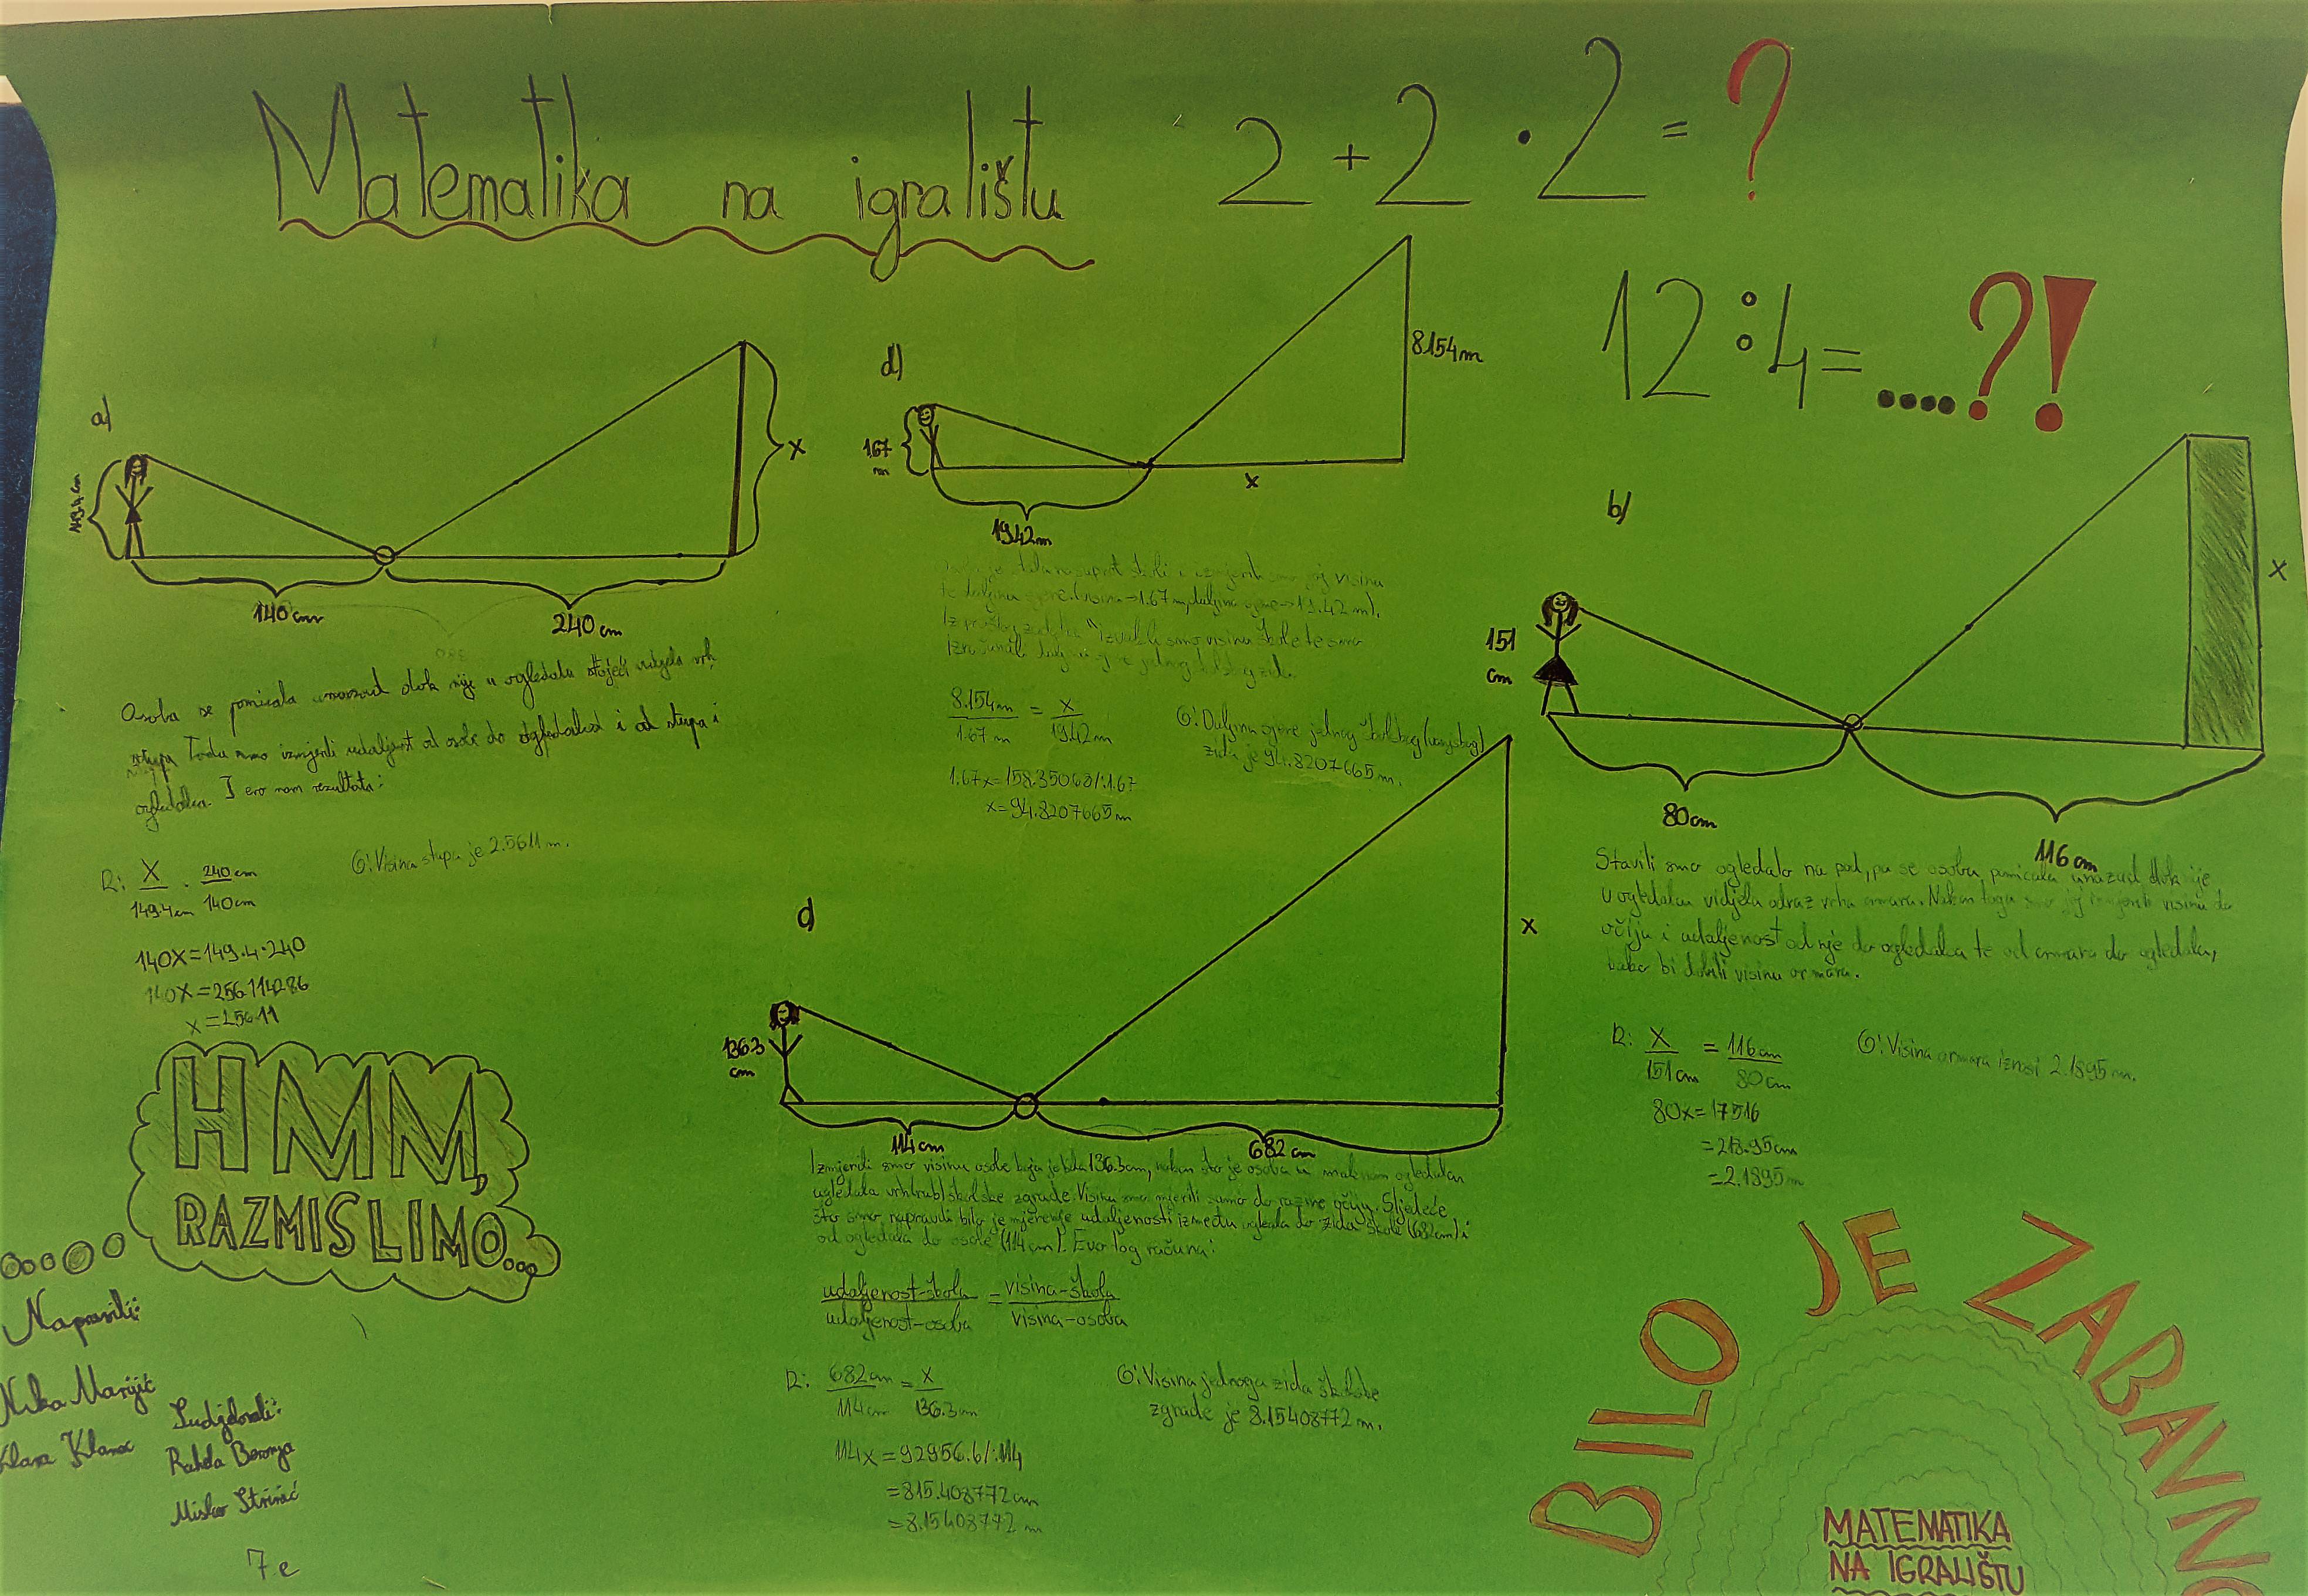 Matematika na igralištu
2 + 2 · 2 = ?
12 : 4 = ....?!
a)
149.4 cm
x
140 cm
240 cm
Osoba se pomicala unazad dok nije u ogledalu stojeći vidjela vrh
stupa Tada smo izmjerili udaljenost od osobe do ogledala i od stupa i
ogledala. I evo nam rezultata:
R: X 240 cm
149.4 cm 140 cm
140X=149.4·240
140X=256.114286
x=256.11
O: Visina stupa je 2.5611 m.
d)
1.67
m
19.42 m
x
8.154 m
je stala nasuprot školi i izmjerili smo joj visinu
te duljinu sjene (visina→1.67 m, duljina sjene→19.42 m).
Iz prošlog zadatka Izvukli smo visinu škole te smo
Izračunali duljinu sjene jednog školskog zida.
8.154 m = x
1.67 m 19.42 m
1.67x=158.35068/:1.67
x=94.8207665 m
O: Duljina sjene jednog školskog (vanjskog)
zida je 94.8207665 m.
b)
151
cm
x
80 cm
116 cm
Stavili smo ogledalo na pod, pa se osoba pomicala unazad dok nije
u ogledalu vidjela odraz vrha ormara. Nakon toga smo joj izmjerili visinu do
očiju i udaljenost od nje do ogledala te od ormara do ogledala,
kako bi dobili visinu ormara.
R: X = 116 cm
151 cm 80 cm
80x=17516
=218.95 cm
=2.1895 m
O: Visina ormara iznosi 2.1895 m.
c)
136.3
cm
x
114 cm
682 cm
Izmjerili smo visinu osobe koja je bila 136.3 cm, nakon što je osoba u malenom ogledalu
ugledala vrh(rub) školske zgrade. Visinu smo mjerili samo do razine očiju. Sljedeće
što smo napravili bilo je mjerenje udaljenosti između ogledala do zida škole (682 cm) i
od ogledala do osobe (114 cm). Evo tog računa:
udaljenost-škola = visina-škola
udaljenost-osoba visina-osoba
R: 682 cm = x
114 cm 136.3 cm
114x=92956.6/:114
=815.408772 cm
=8.15408772 m
O: Visina jednoga zida školske
zgrade je 8.15408772 m.
HMM,
RAZMISLIMO...
Napravili:
Nika Marijić
Sudjelovali:
7.e
BILO JE ZABAVNO
MATEMATIKA
NA IGRALIŠTU